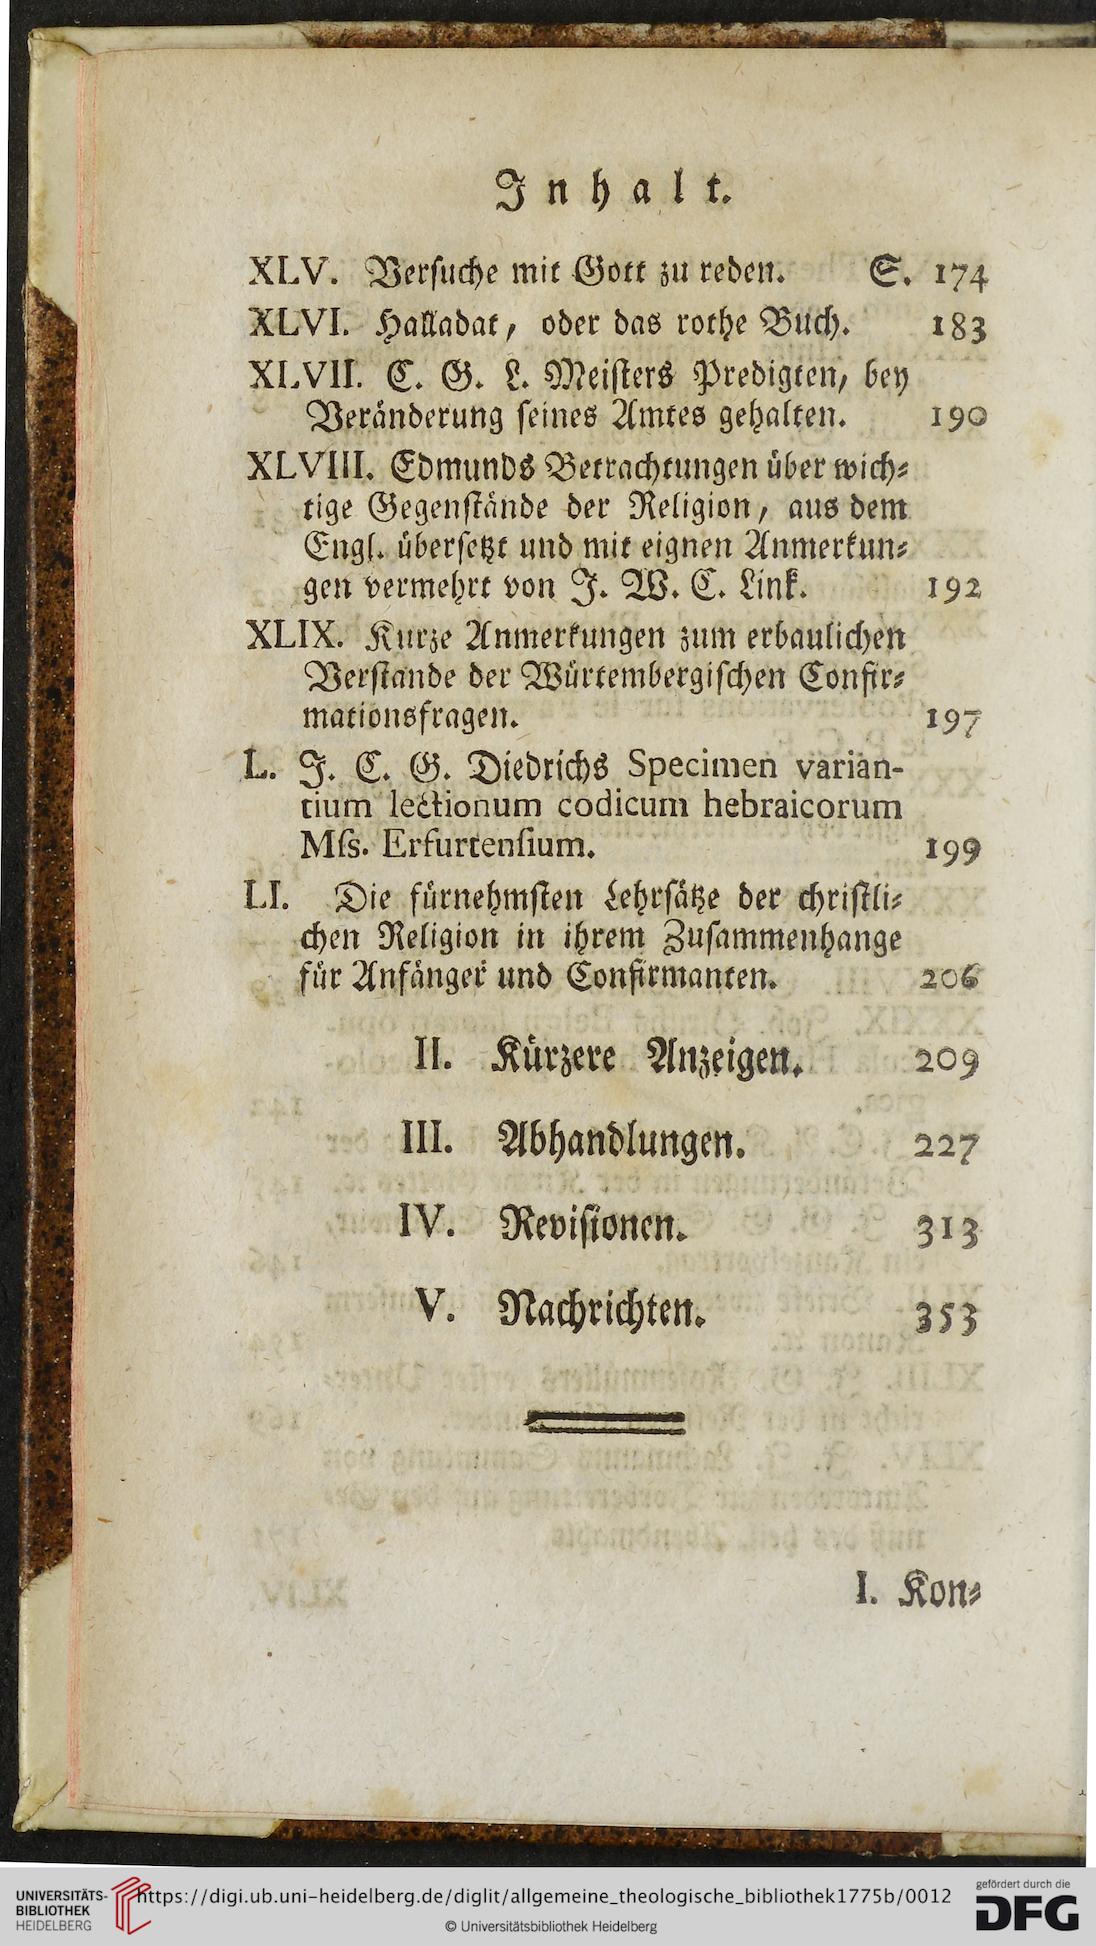 Inhalt.
XLV. Verſuche mit Gott zu reden. S. 174
XLVI. Halladat, oder das rothe Buch. 183
XLVII. C. G. L. Meiſters Predigten, bey
Veränderung ſeines Amtes gehalten. 190
XLVIII. Edmunds Betrachtungen über wich⸗
tige Gegenſtände der Religion, aus dem
Engl. überſetzt und mit eignen Anmerkun⸗
gen vermehrt von J. W. C. Link. 192
XLIX. Kurze Anmerkungen zum erbaulichen
Verſtande der Würtembergiſchen Confir⸗
mationsfragen. 197
L. J. C. G. Diedrichs Specimen varian-
tium lectionum codicum hebraicorum
Mſs. Erfurtenſium. 199
LI. Die fürnehmſten Lehrſätze der chriſtli⸗
chen Religion in ihrem Zuſammenhange
für Anfänger und Confirmanten. 206
II. Kürzere Anzeigen. 209
III. Abhandlungen. 227
IV. Reviſionen. 313
V. Nachrichten. 353
I. Kon⸗
UNIVERSITÄTS-
BIBLIOTHEK
HEIDELBERG
https://digi.ub.uni-heidelberg.de/diglit/allgemeine_theologische_bibliothek1775b/0012
© Universitätsbibliothek Heidelberg
gefördert durch die
DFG